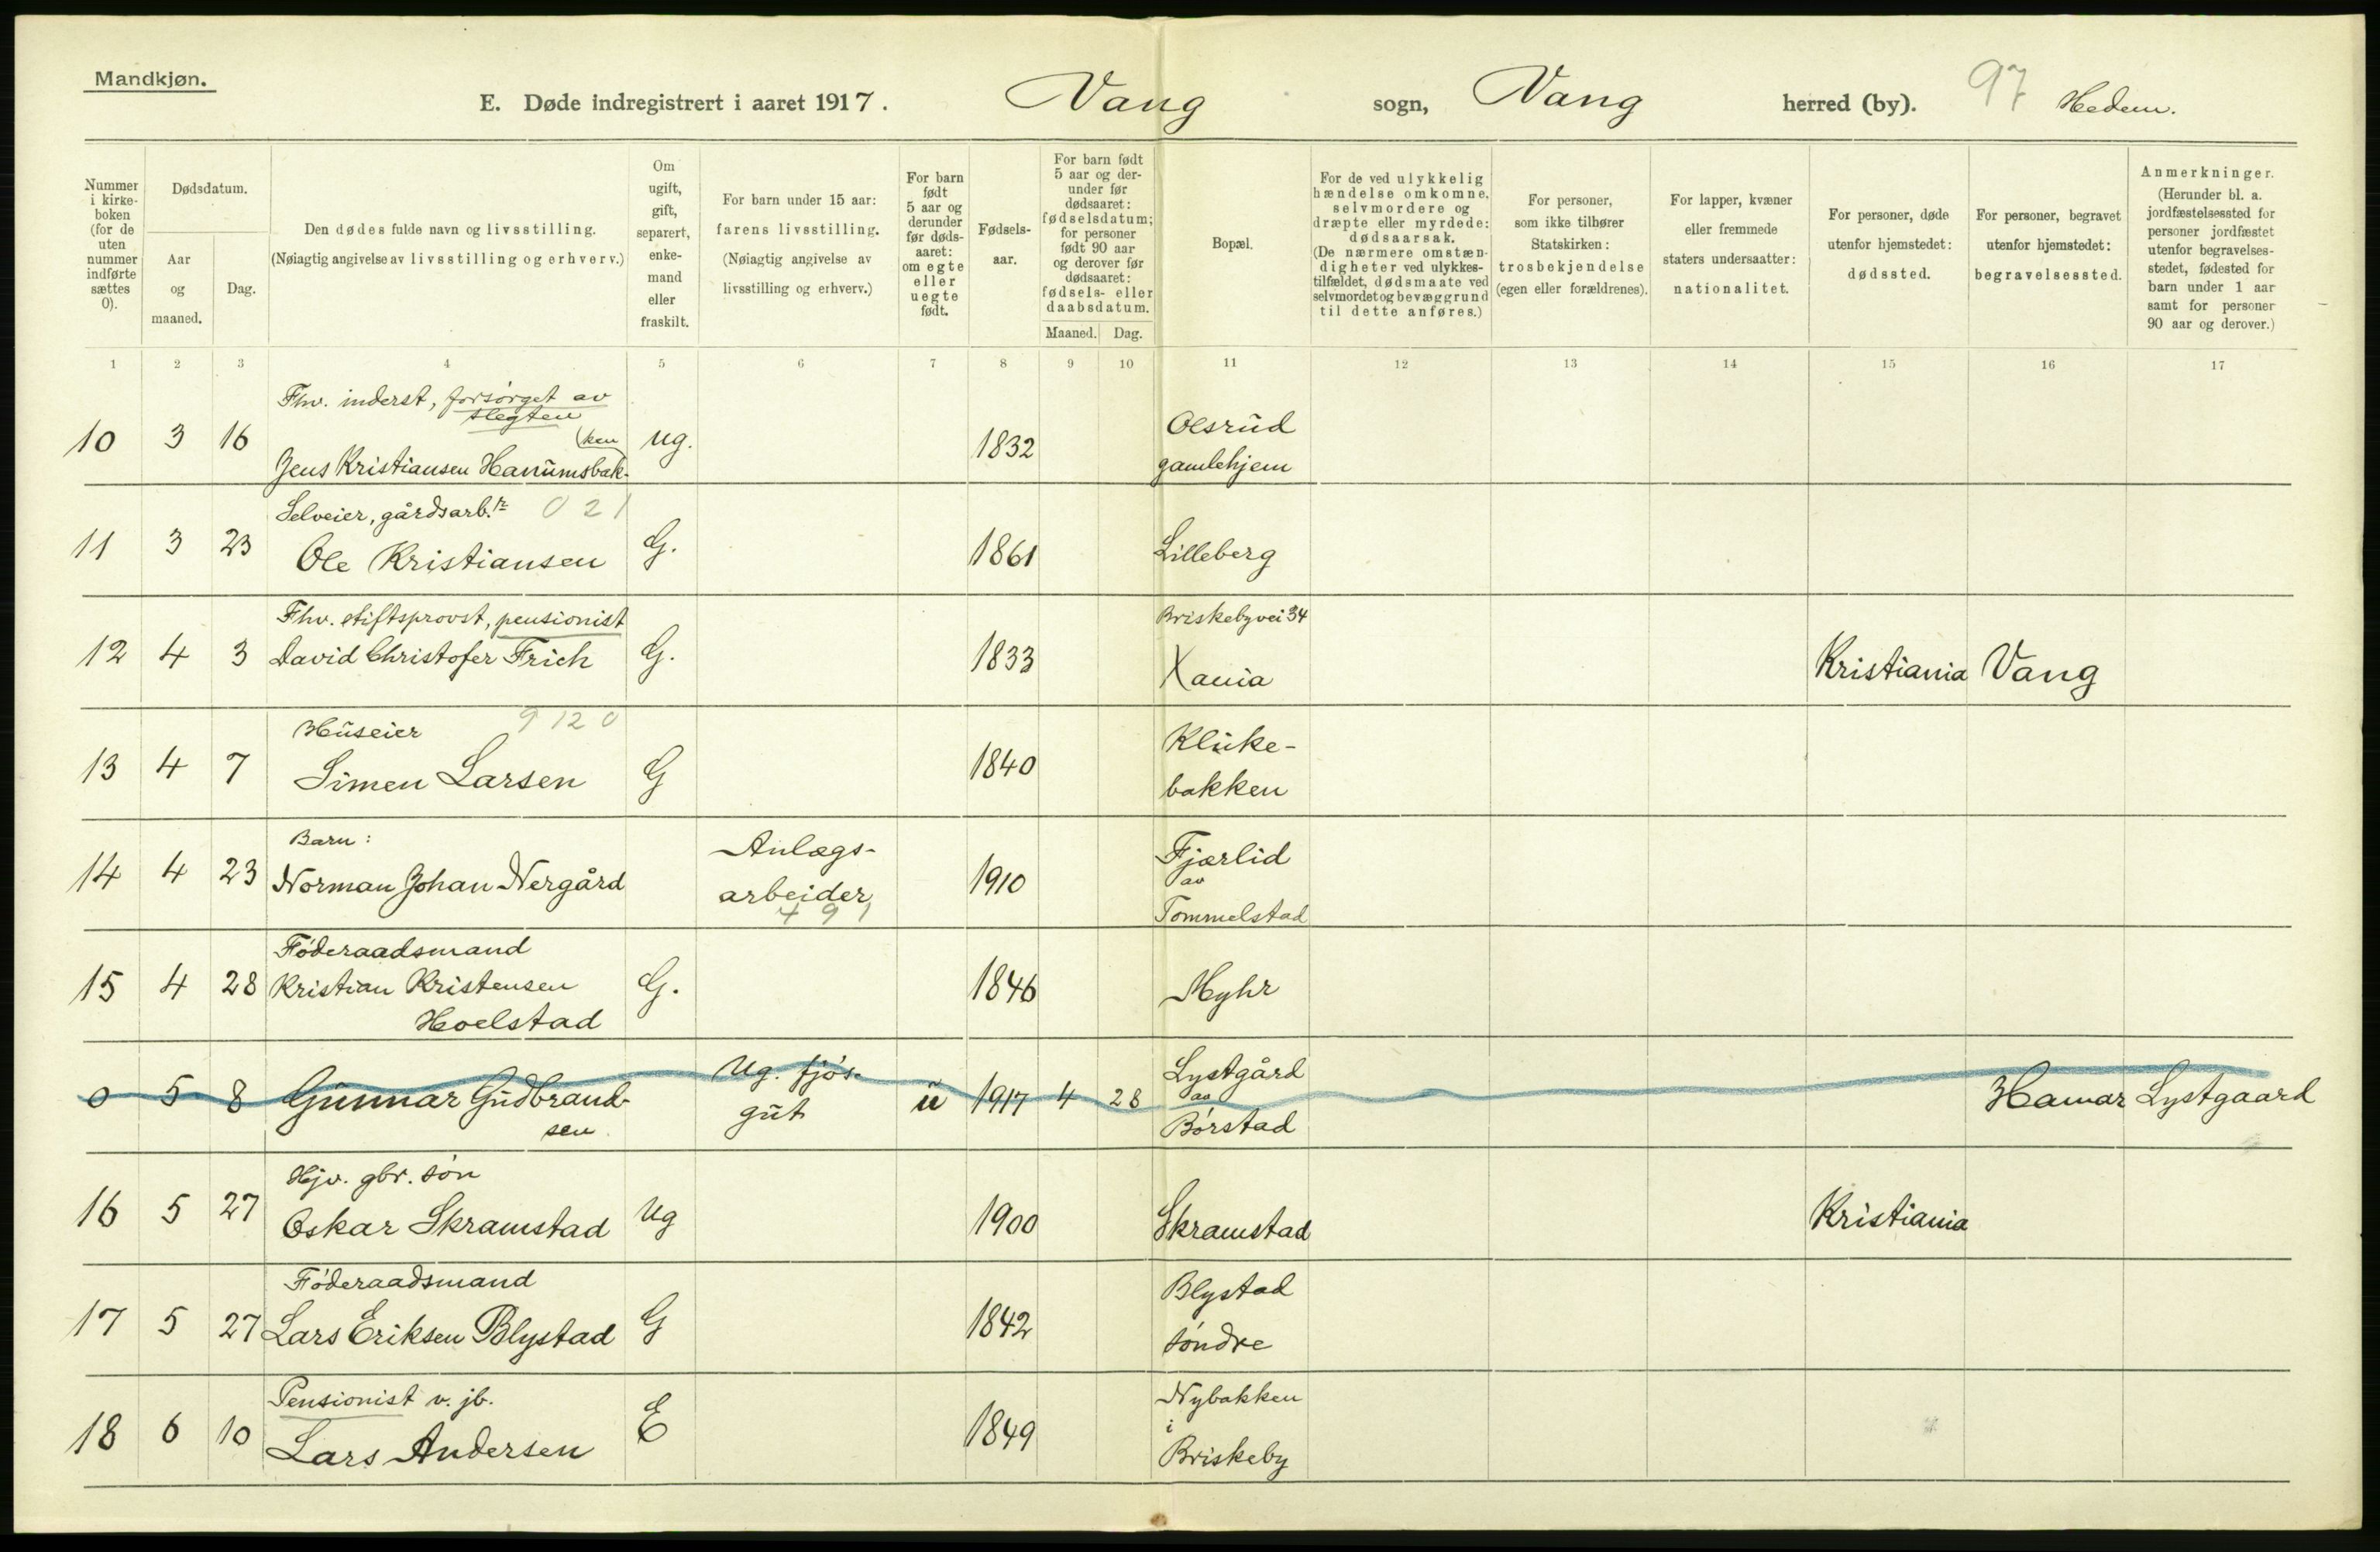 Mandkjøn.
E. Døde indregistrert i aaret 1917. Vang sogn, Vang herred (by). 97 Hedem.
Nummer i kirke- boken (for de uten nummer indførte sættes 0).
Dødsdatum.
Aar og maaned.
Dag.
Den dødes fulde navn og livsstilling.
(Nøiagtig angivelse av livsstilling og erhverv.)
Om ugift, gift, separert, enke- mand eller fraskilt.
For barn under 15 aar: farens livsstilling. (Nøiagtig angivelse av livsstilling og erhverv.)
For barn født 5 aar og derunder før døds- aaret: om egte eller uegte født.
Fødsels- aar.
For barn født 5 aar og der- under før dødsaaret: fødselsdatum; for personer født 90 aar og derover før dødsaaret: fødsels- eller daabsdatum.
Maaned. Dag.
Bopæl.
For de ved ulykkelig hændelse omkomne, selvmordere og dræpte eller myrdede: dødsaarsak. (De nærmere omstæn- digheter ved ulykkes- tilfældet, dødsmaate ved selvmordet og bevæggrund til dette anføres.)
For personer, som ikke tilhører Statskirken: trosbekjendelse (egen eller forældrenes).
For lapper, kvæner eller fremmede staters undersaatter: nationalitet.
For personer, døde utenfor hjemstedet: dødssted.
For personer, begravet utenfor hjemstedet: begravelsessted.
Anmerkninger. (Herunder bl. a. jordfæstelsessted for personer jordfæstet utenfor begravelses- stedet, fødested for barn under 1 aar samt for personer 90 aar og derover.)
1 2 3 4 5 6 7 8 9 10 11 12 13 14 15 16 17
Fhv. inderst, forsørget av
slegten
10 3 16 Jens Kristiansen Hanumsbak- (ken ug. 1832 Olsrud
gamlehjem
Selveier, gårdsarb.r 0 21
11 3 23 Ole Kristiansen G. 1861 Lilleberg
Fhv. stiftsprovst, pensionist Briskebyvei 34
12 4 3 David Christofer Frich G. 1833 Xania Kristiania Vang
Huseier 9 12 0 Kluke-
13 4 7 Simen Larsen G 1840 bakken
Barn: Anlægs- Fjærlid
14 4 23 Norman Johan Nergård arbeider 1910 av
491 Tommelstad
Føderaadsmand
15 4 28 Kristian Kristensen G. 1846 Myhr
Hoelstad
Ug. fjøs- Lystgård
0 5 8 Gunnar Gudbrand- gut u 1917 4 28 av Hamar Lystgaard
sen Børstad
Hjv. gbr. søn
16 5 27 Oskar Skramstad Ug 1900 Skramstad Kristiania
Føderaadsmand Blystad
17 5 27 Lars Eriksen Blystad G 1842 søndre
Pensionist v. jb. Nybakken
18 6 10 Lars Andersen E 1849 i
Briskeby